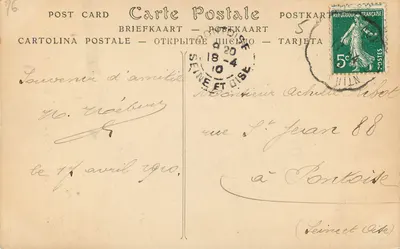 96
POST CARD Carte Postale POSTKARTE
BRIEFKAART — BREFKORT
CARTOLINA POSTALE — ОТКРЫТОЕ ПИСЬМО — TARJETA
5
RÉPUBLIQUE FRANÇAISE
5c POSTES
20
18-4
10
SEINE ET OISE
Souvenir d'amitié
le 17 avril 1910.
Monsieur Achille
rue St Jean 88
à Pontoise
(Seine et Oise)